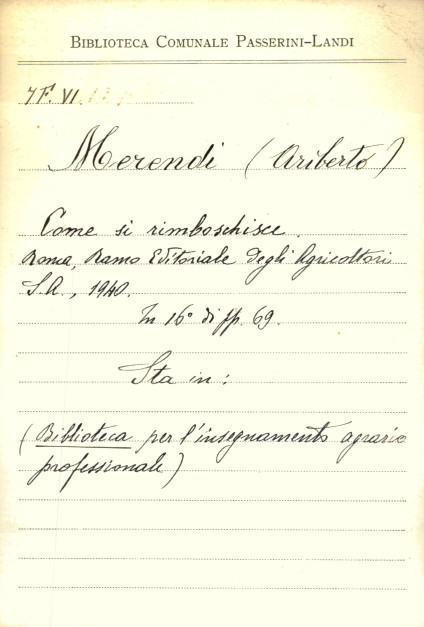 BIBLIOTECA COMUNALE PASSERINI-LANDI
7F. VI
Merendi (Ariberto)
Come si rimboschisce.
Roma, Ramo Editoriale degli Agricoltori
S.A., 1940.
In 16° di pp. 69.
Sta in:
(Biblioteca per l'insegnamento agrario
professionale)